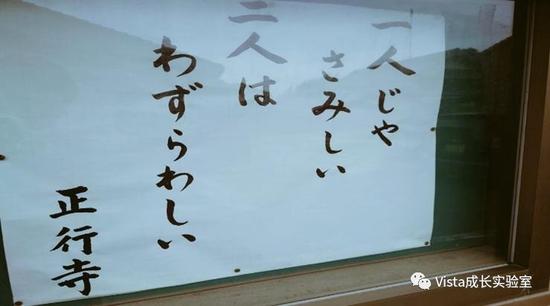 一人じゃ
さみしい
二人は
わずらわしい
正行寺
Vista成长实验室